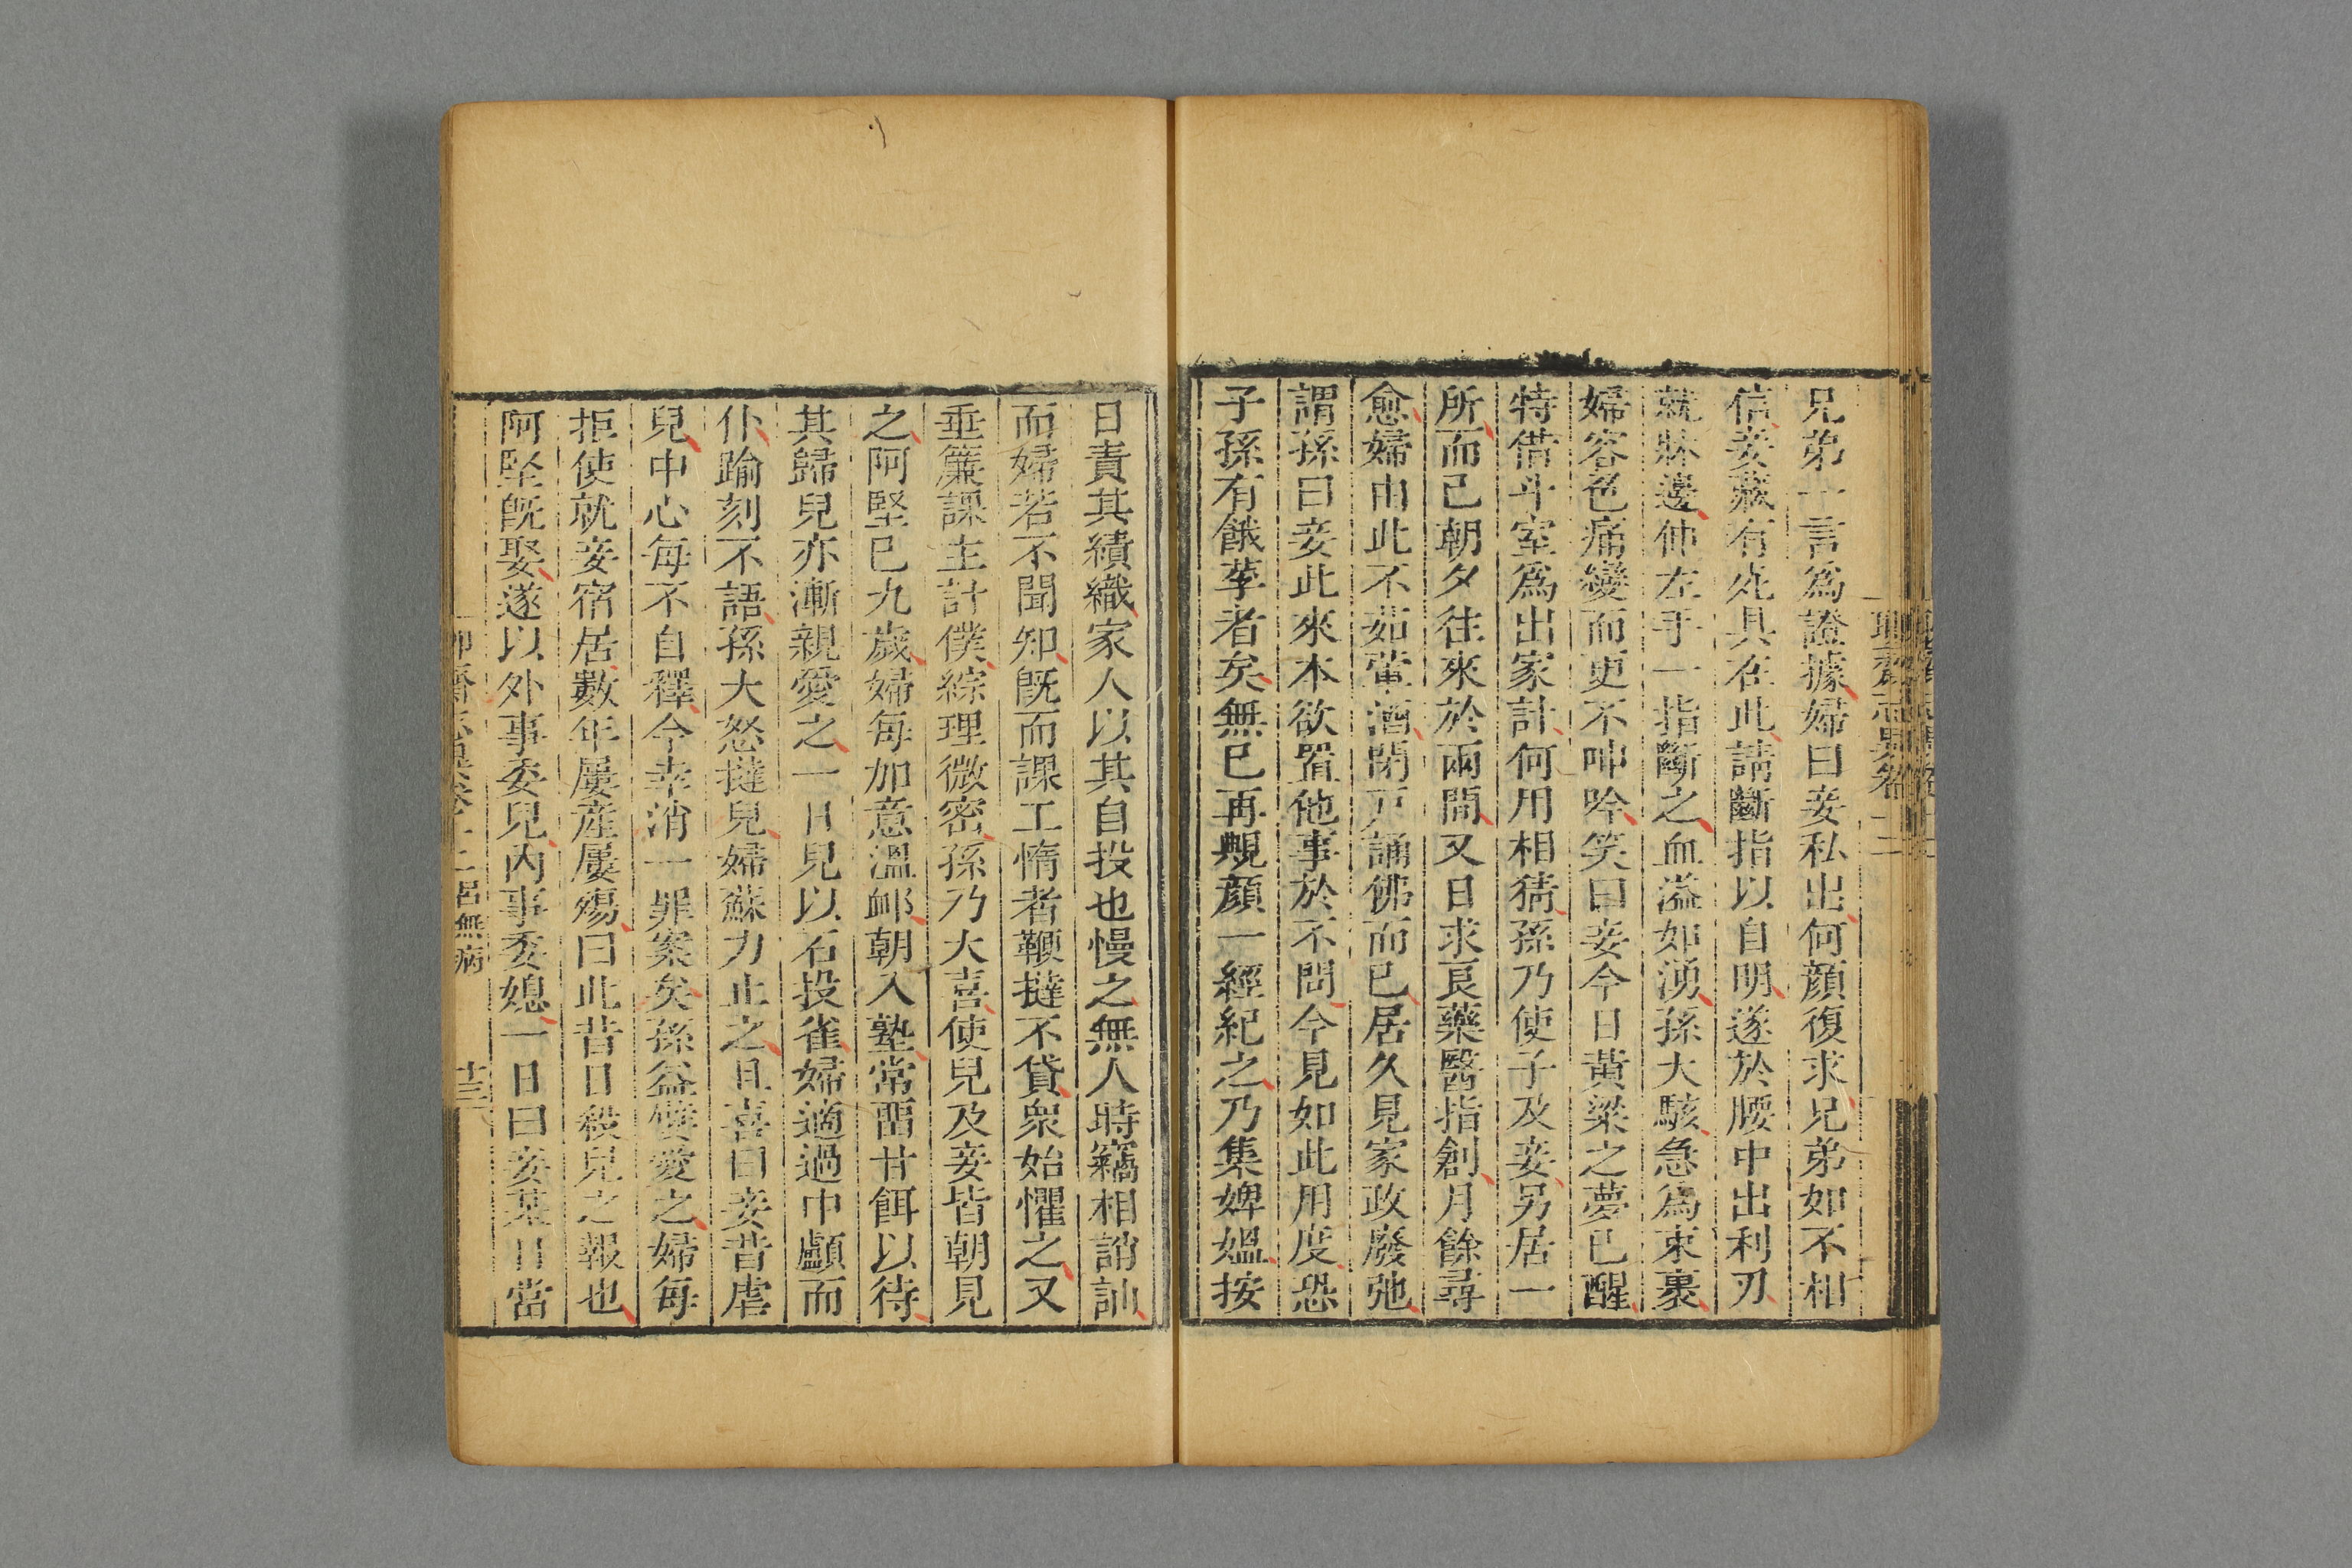 兄弟一言爲證據婦曰妾私出何顔復求兄弟如不相
信妾藏有兇具在此請斷指以自明遂於腰中出利刃
就牀邊伸左手一指斷之血溢如湧孫大駭急爲束裹
婦容色痛變而更不呻吟笑曰妾今日黃粱之夢已醒
特借斗室爲出家計何用相猜孫乃使子及妾另居一
所而己朝夕往來於兩間又日求良藥醫指創月餘尋
愈婦由此不茹葷酒閉戸誦佛而已居久見家政廢弛
謂孫曰妾此來本欲置他事於不問今見如此用度恐
子孫有餓莩者矣無已再靦顔一經紀之乃集婢媼按
日責其績織家人以其自投也慢之無人時竊相誚訕
而婦若不聞知既而課工惰者鞭撻不貸衆始懼之又
垂簾課主計僕綜理微密孫乃大喜使兒及妾皆朝見
之阿堅已九歲婦每加意溫卹朝入塾常畱甘餌以待
其歸兒亦漸親愛之一日兒以石投雀婦適過中顱而
仆踰刻不語孫大怒撻兒婦蘇力止之且喜曰妾昔虐
兒中心每不自釋今幸消一罪案矣孫益嬖愛之婦每
拒使就妾宿居數年屢産屢殤曰此昔日殺兒之報也
阿堅既娶遂以外事委兒內事委媳一日曰妾某日當
呂無病
十三